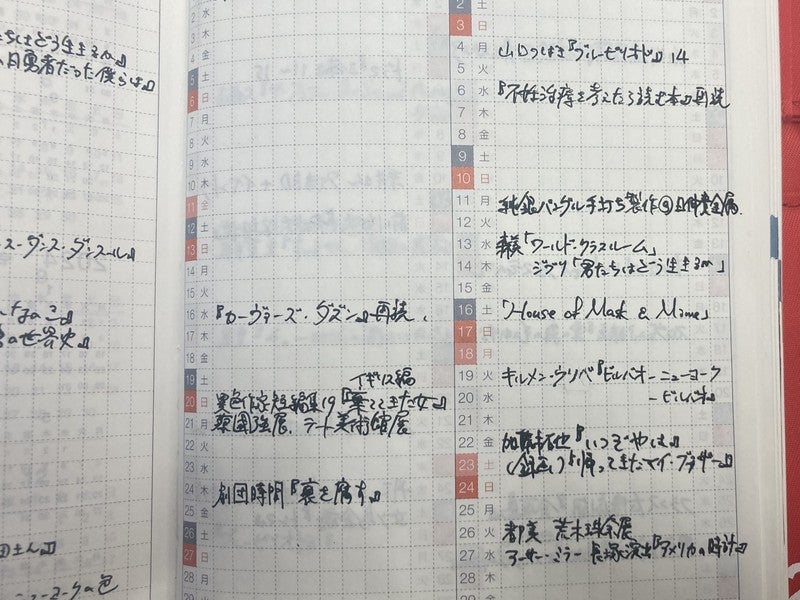 ちはどう生きるか』
日勇者だった僕らは』
ス・ダンス・ダンスール』
の世界史』
ニューヨークの色
2 水
3 木
4 金
5 土
6 日
7 月
8 火
9 水
10 木
11 金
12 土
13 日
14 月
15 火
16 水 『カーヴァーズ・ダズン』再読、
17 木
18 金
イギリス編
19 土
20 日 異色作家短編集19『棄ててきた女』
21 月 蔡國強展、テート美術館展
22 火
23 水
24 木 劇団時間『裏を席す』
25 金
26 土
27 日
28 月
2 土
3 日
4 月 山口つばさ『ブルーピリオド』14
5 火
6 水 『不妊治療を考えたら読む本』再読
7 木
8 金
9 土
10 日
11 月 純銀バングル手打ち製作@
12 火
13 水 森美「ワールド・クラスルーム」
14 木 ジブリ「君たちはどう生きるか」
15 金
16 土 「House of Mask & Mime」
17 日
18 月
19 火 キルメン・ウリベ『ビルバオーニューヨーク
20 水 ービルバオ』
21 木
22 金 加藤拓也『いつぞやは』
23 土 (録画)『帰ってきたマイ・ブラザー』
24 日
25 月
26 火 都美 荒木珠奈展
27 水 アーサー・ミラー 長塚演出『アメリカの時計』
28 木